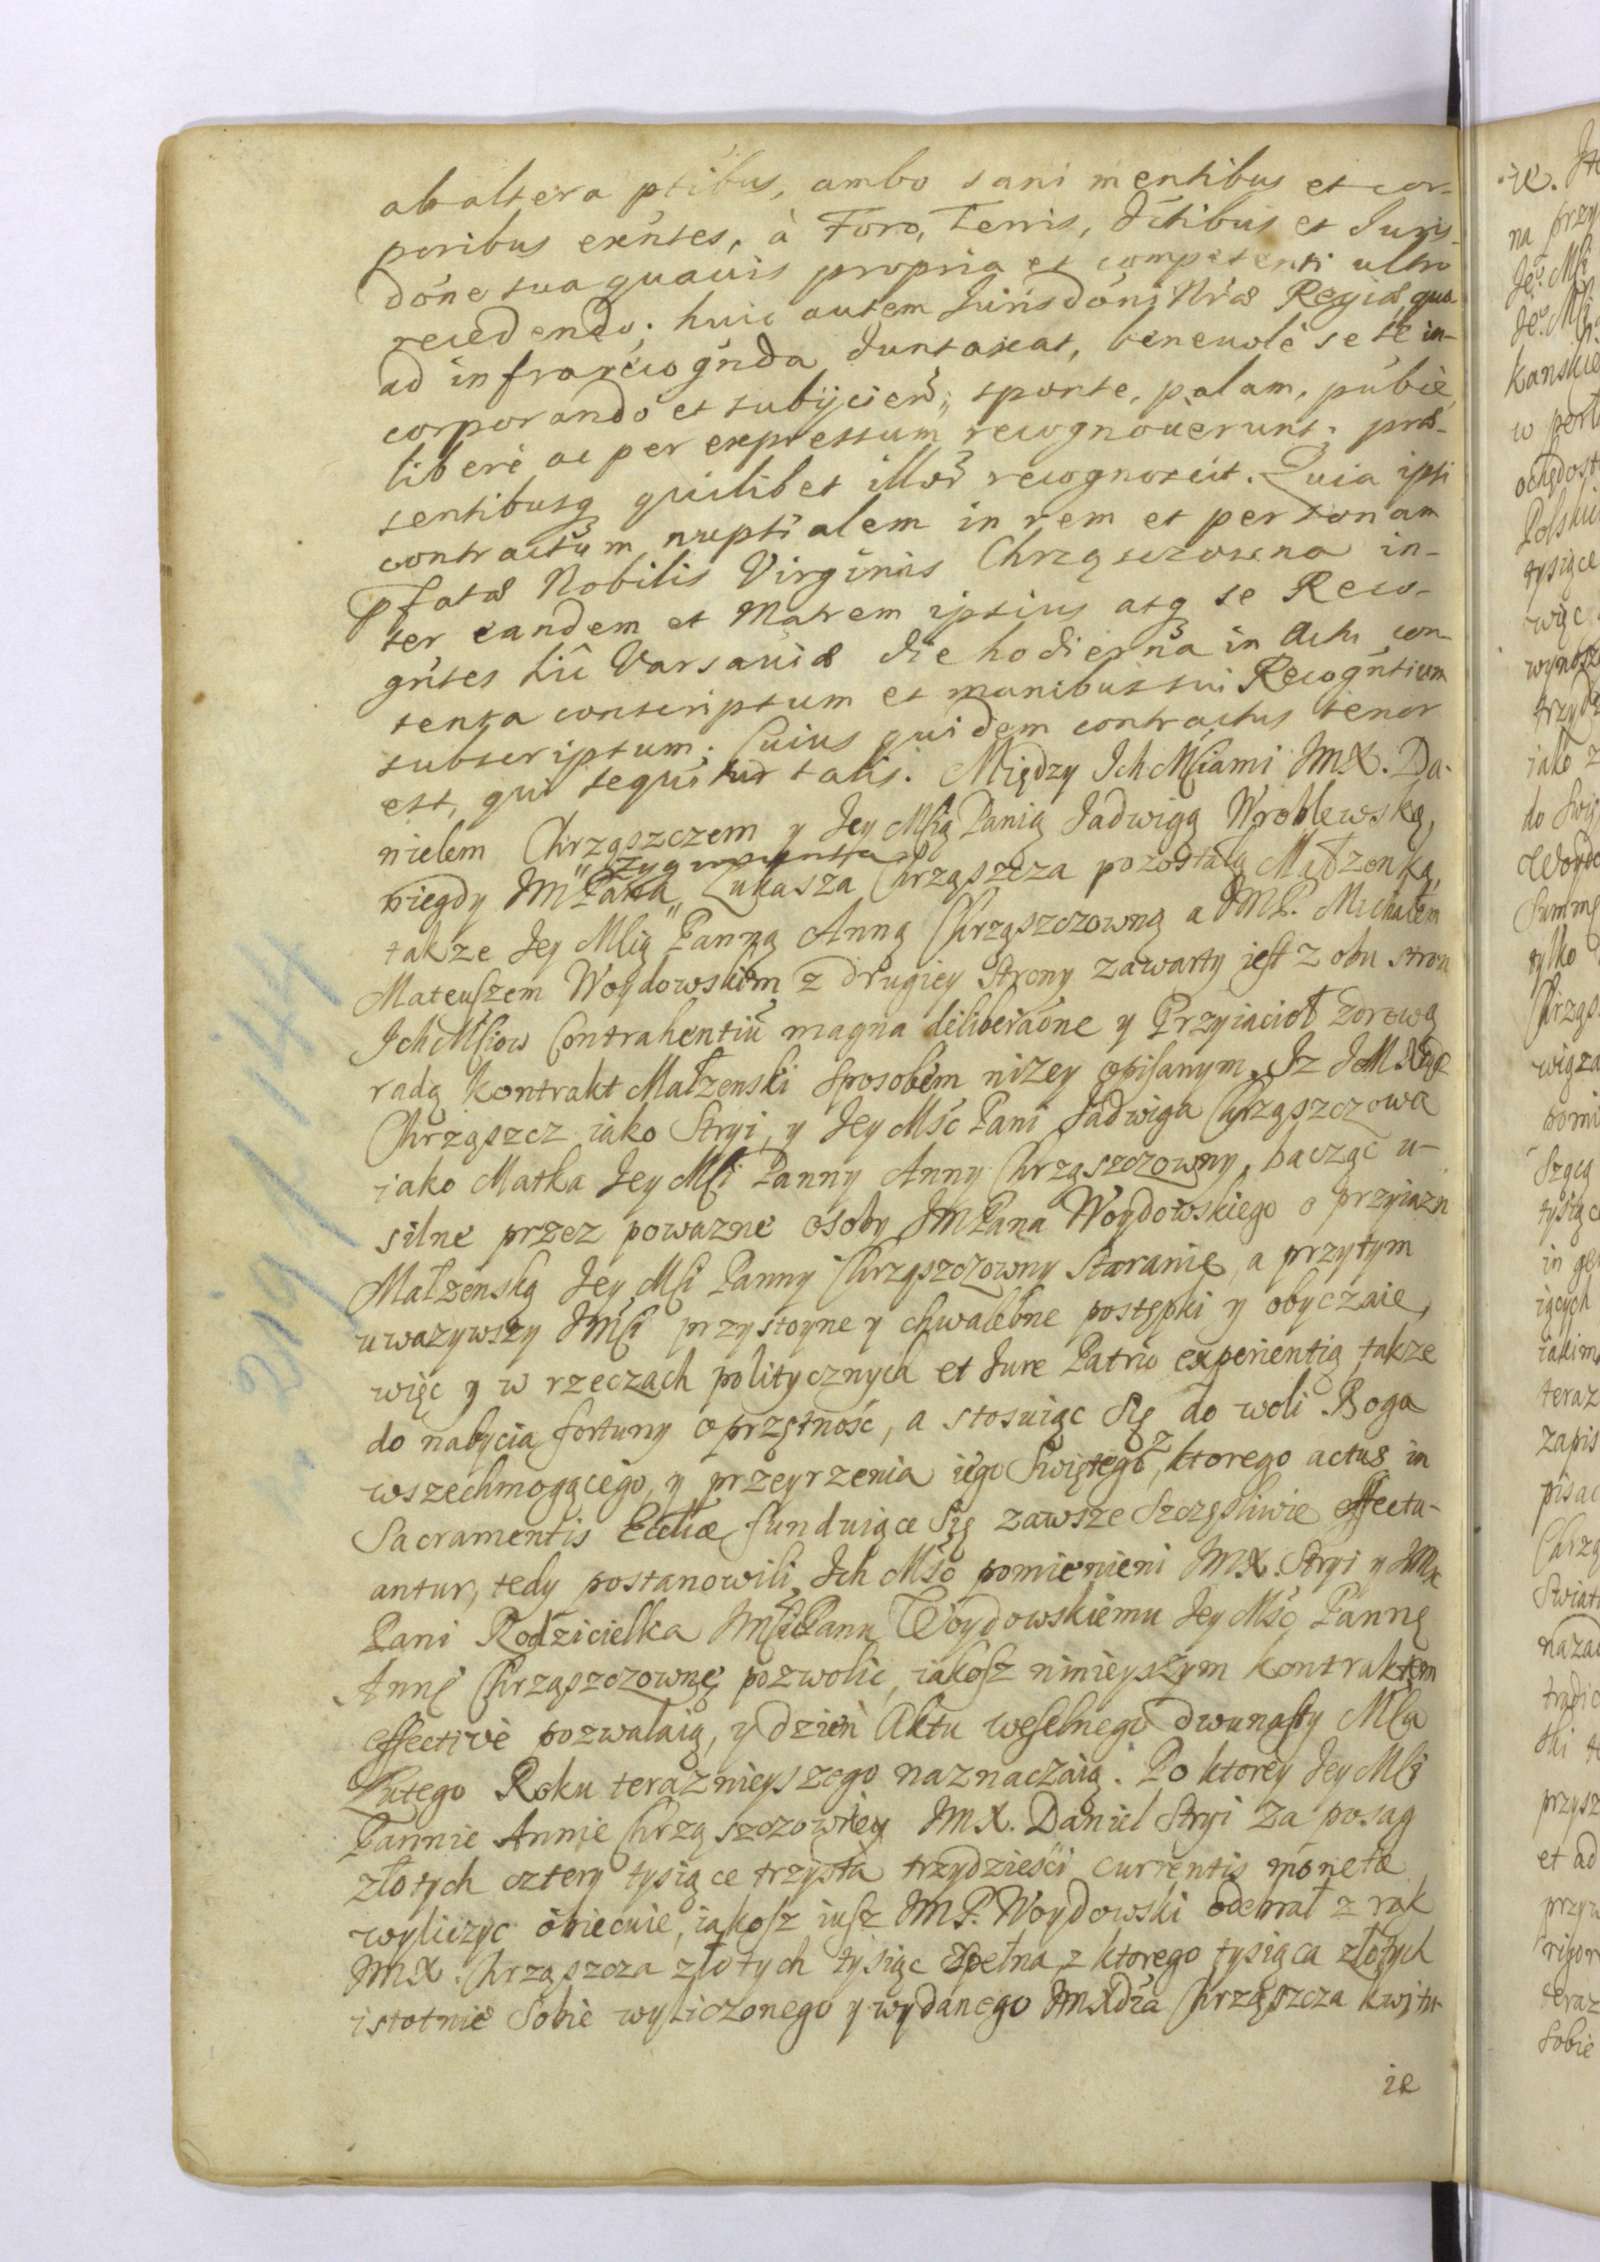 ab altera ptibus, ambo sani mentibus et cor-
poribus exńtes, à Foro, Terris, Dctibus et Juris-
done sua quauis propria et competenti ultro
recedendo: huic autem Jurisdoni Nrae Regiae quo
ad infrarecogńda duntaxat, beneuole sese in-
corporando et subijciendo, sponte, palam, publice,
libere ac per expressum recognouerunt; prae-
sentibusq quilibet illor recognoscit. Quia ipsi
contractum nuptialem in rem et personam
pfatae Nobilis Virginis Chrząszczowna in-
ter eandem et Matrem ipsius atq se Reco-
gńtes hic Varsauiae die hodierna in Actu con-
tenta conscriptum et manibus sui Recogńtium
subscriptum. Cuius quidem contractus tenor
est, qui sequitur talis. Między Ich Mściami JMX. Da-
nielem Chrząszczem y Jey Mścią Panią Jadwigą Wroblewską,
niegdy JMPana Zygmunta Łukasza Chrząszcza pozostałą Małżonką,
także Jey Mścią Panną Anną Chrząszczowną a JMP. Michałem
Mateuszem Woydowskim z drugiey Strony zawarty jest z obu stron
Ich Mściow Contrahentiu magna deliberaone y Przyiacioł zdrową
radą Kontrakt Małżenski sposobem niżey opisanym. Iz JM Xdz
Chrząszcz iako Stryi, y Jey Mść Pani Jadwiga Chrząszczowa
iako Matka Jey Mści Panny Anny Chrząszczowny, bacząc u-
silne przez poważne osoby JMPana Woydowskiego o przyiazn
Małżenską Jey Mści Panny Chrząszczowny staranie, a przytym
uwazywszy JMści przystoyne y chwalebne postępki y obyczaie,
więc y w rzeczach politycznych et Jure Patrio experientią także
do nabycia fortuny oprzętność, a stosuiąc się do woli Boga
wszechmogącego, y przeyrzenia iego Swiętego, z ktorego actus in
Sacramentis Ecclae funduiące się zawsze szczęśliwie effectu-
antur, tedy postanowili Ich Mść pomienieni JMX. Stryi y JMć
Pani Rodzicielka JMści Panu Woydowskiemu Jey Mść Pannę
Annę Chrząszczownę pozwolic, iakosz ninieyszym kontraktem
effective pozwalaią, y dzień Aktu weselnego dwunasty Msca
Lutego Roku teraznieyszego naznaczaią. Po ktorey Jey Mści
Pannie Annie Chrząszczowney JMX. Daniel Stryi za posag
złotych cztery tysiące trzysta trzydzieści currentis monetae
wyliczyc obiecuie, iakosz iusz JMP. Woydowski odebrał z rąk
JMX. Chrząszcza złotych tysiąc zpełna, z ktorego tysiąca złotych
istotnie sobie wyliczonego y wydanego JMXdza Chrząszcza kwitu-
ie